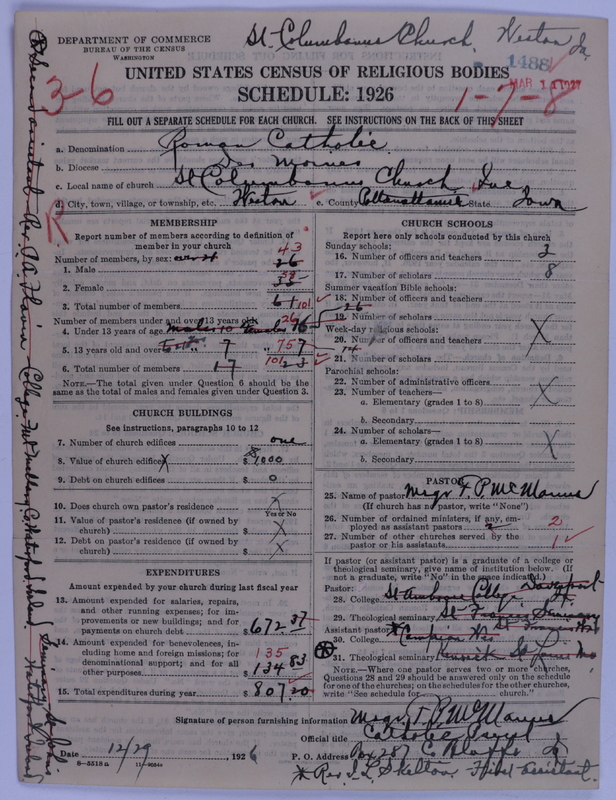 St. Columbanus Church, Weston Ia
DEPARTMENT OF COMMERCE
BUREAU OF THE CENSUS
WASHINGTON
1488
MAR 1 1927
UNITED STATES CENSUS OF RELIGIOUS BODIES
SCHEDULE: 1926
3-6
1-7-8
FILL OUT A SEPARATE SCHEDULE FOR EACH CHURCH. SEE INSTRUCTIONS ON THE BACK OF THIS SHEET
a. Denomination Roman Catholic
b. Diocese Des Moines
c. Local name of church St Columbanus Church Inc
d. City, town, village, or township, etc. Weston e. County Pottawattamie State Iowa
R
MEMBERSHIP
Report number of members according to definition of
member in your church
Number of members, by sex:
43
1. Male 26
2. Female 35
3. Total number of members 61 101
Number of members under and over 13 years old:
4. Under 13 years of age males 10 females 16 26
5. 13 years old and over 7 " 7 75
6. Total number of members 17 23 101
NOTE.—The total given under Question 6 should be the
same as the total of males and females given under Question 3.
CHURCH BUILDINGS
See instructions, paragraphs 10 to 12
7. Number of church edifices one
8. Value of church edifice $ 8,000
9. Debt on church edifices $ 0
10. Does church own pastor's residence X
Yes or No
11. Value of pastor's residence (if owned by
church) $ X
12. Debt on pastor's residence (if owned by
church) $ X
EXPENDITURES
Amount expended by your church during last fiscal year
13. Amount expended for salaries, repairs,
and other running expenses; for im-
provements or new buildings; and for
payments on church debt $ 672.37
14. Amount expended for benevolences, in-
cluding home and foreign missions; for
denominational support; and for all
other purposes $ 134.83
135
15. Total expenditures during year $ 807.20
CHURCH SCHOOLS
Report here only schools conducted by this church
Sunday schools:
16. Number of officers and teachers 2
17. Number of scholars 8
Summer vacation Bible schools:
18. Number of officers and teachers
19. Number of scholars
Week-day religious schools:
20. Number of officers and teachers X
21. Number of scholars
Parochial schools:
22. Number of administrative officers
23. Number of teachers—
a. Elementary (grades 1 to 8) X
b. Secondary
24. Number of scholars—
a. Elementary (grades 1 to 8) X
b. Secondary
PASTOR
25. Name of pastor Msgr F. P. McManus
(If church has no pastor, write "None")
26. Number of ordained ministers, if any, em-
ployed as assistant pastors 2
27. Number of other churches served by the
pastor or his assistants 1
If pastor (or assistant pastor) is a graduate of a college or
theological seminary, give name of institution below. (If
not a graduate, write "No" in the space indicated.)
Pastor:
28. College St Ambrose College Davenport
29. Theological seminary St Francis Seminary
St Francis Wis
Assistant pastor:
30. College Campion Wis
31. Theological seminary Kenrick St Louis Mo
NOTE.—Where one pastor serves two or more churches,
Questions 28 and 29 should be answered only on the schedule
for one of the churches; on the schedules for the other churches,
write "See schedule for church."
Signature of person furnishing information Msgr. F. P. McManus
Official title Catholic Priest
Date 12/29, 1926 P. O. Address Box 287 Co Bluffs Ia
8-5518 a
* Rev. J. L. Skelton. First assistant.